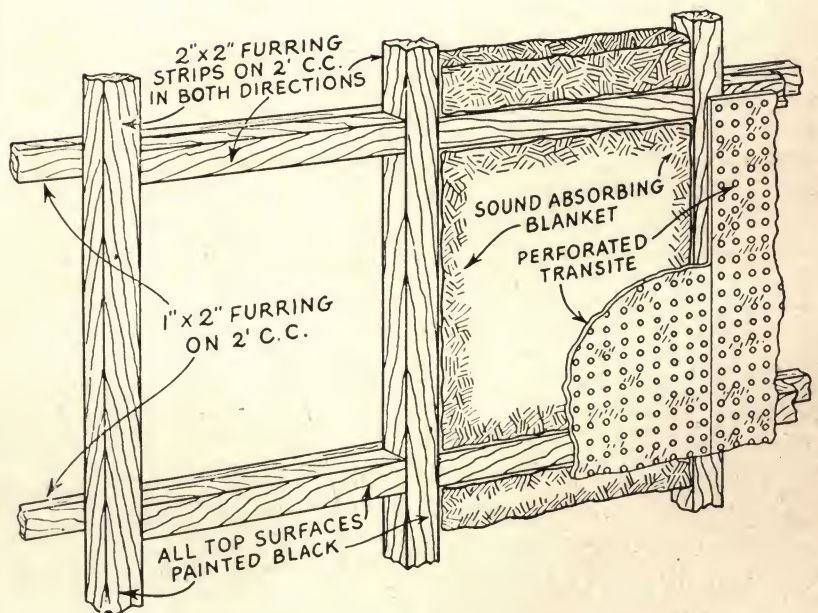 2"x 2" FURRING
STRIPS ON 2' C.C.
IN BOTH DIRECTIONS
SOUND ABSORBING
BLANKET
PERFORATED
TRANSITE
1" x 2" FURRING
ON 2' C.C.
ALL TOP SURFACES
PAINTED BLACK